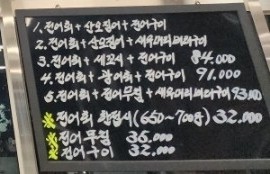 1. 전어회 + 산오징어 + 전어구이
2. 전어회 + 산오징어 + 새우머리버터구이
3. 전어회 + 세꼬시 + 전어구이 84.000
4. 전어회 + 광어회 + 전어구이 91.000
5. 전어회 + 전어무침 + 새우머리버터구이 93.000
※ 전어회 한접시 (650~700g) 32.000
※ 전어무침 35.000
※ 전어구이 32.000